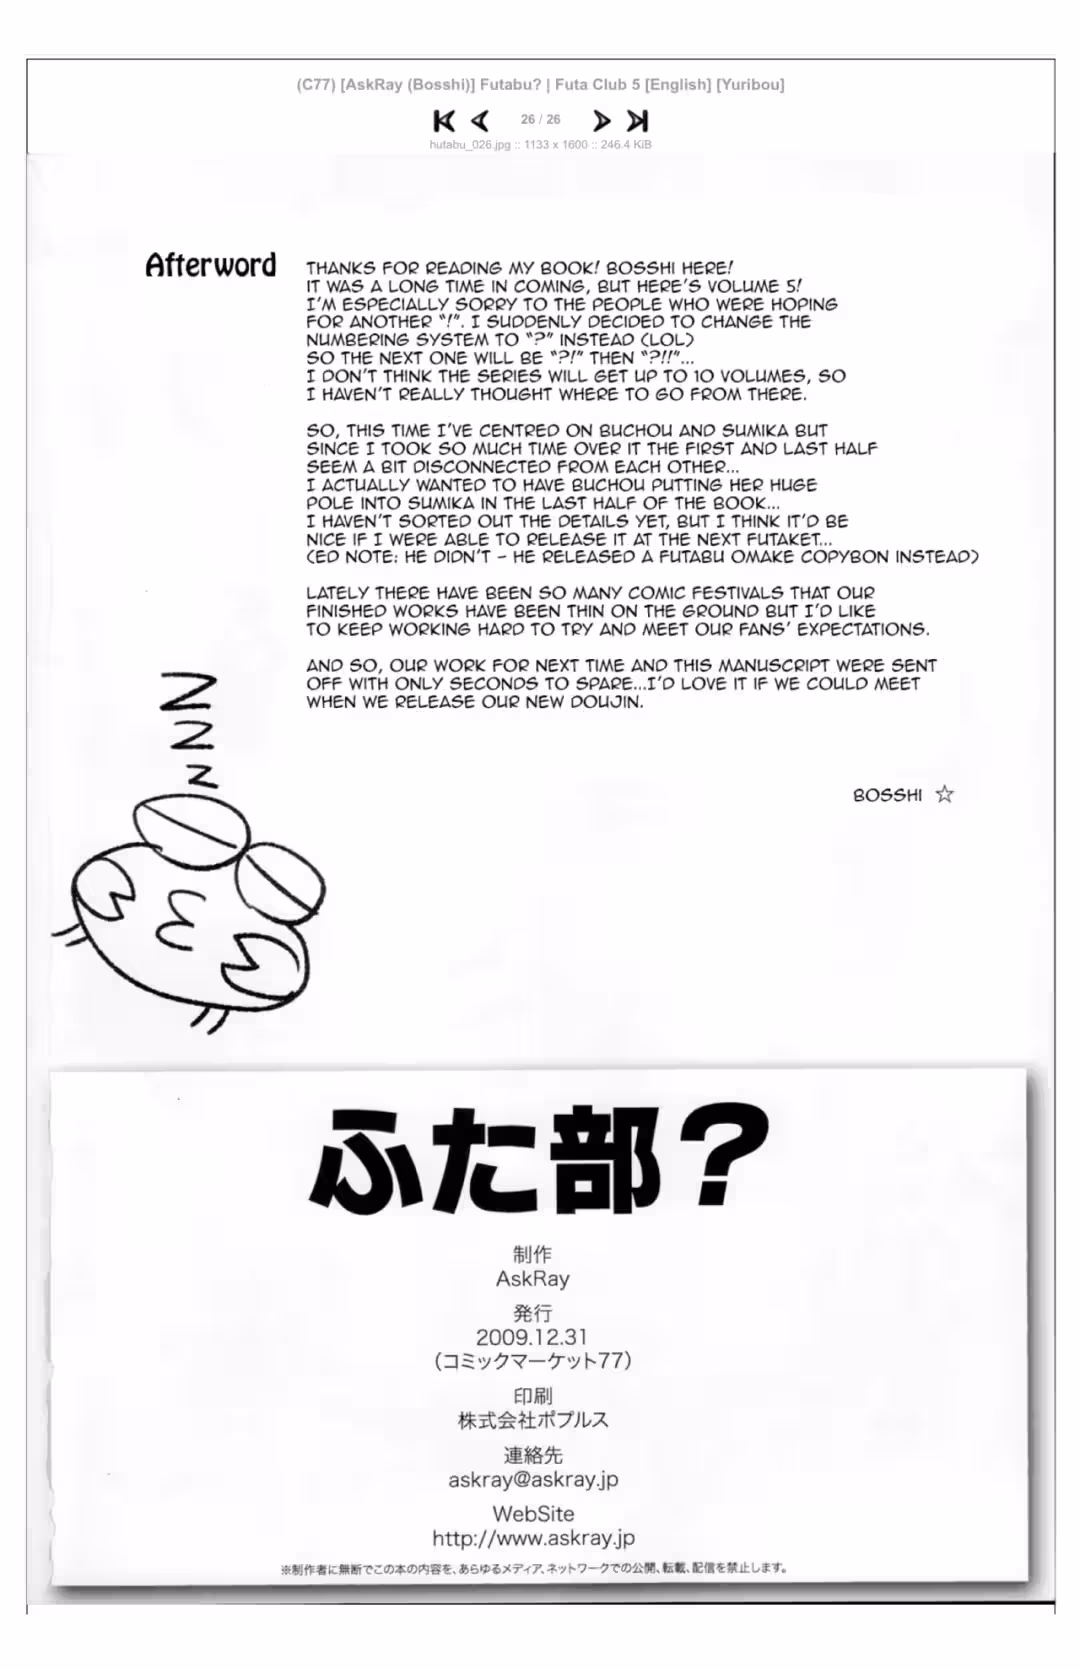 (C77) [AskRay (Bosshi)] Futabu? | Futa Club 5 [English] [Yuribou]
26 / 26
hutabu_026.jpg :: 1133 x 1600 :: 246.4 KiB
Afterword
THANKS FOR READING MY BOOK! BOSSHI HERE!
IT WAS A LONG TIME IN COMING, BUT HERE'S VOLUME 5!
I'M ESPECIALLY SORRY TO THE PEOPLE WHO WERE HOPING
FOR ANOTHER "!". I SUDDENLY DECIDED TO CHANGE THE
NUMBERING SYSTEM TO "?" INSTEAD (LOL)
SO THE NEXT ONE WILL BE "?!" THEN "?!!"...
I DON'T THINK THE SERIES WILL GET UP TO 10 VOLUMES, SO
I HAVEN'T REALLY THOUGHT WHERE TO GO FROM THERE.
SO, THIS TIME I'VE CENTRED ON BUCHOU AND SUMIKA BUT
SINCE I TOOK SO MUCH TIME OVER IT THE FIRST AND LAST HALF
SEEM A BIT DISCONNECTED FROM EACH OTHER...
I ACTUALLY WANTED TO HAVE BUCHOU PUTTING HER HUGE
POLE INTO SUMIKA IN THE LAST HALF OF THE BOOK...
I HAVEN'T SORTED OUT THE DETAILS YET, BUT I THINK IT'D BE
NICE IF I WERE ABLE TO RELEASE IT AT THE NEXT FUTAKET...
(ED NOTE: HE DIDN'T - HE RELEASED A FUTABU OMAKE COPYBON INSTEAD)
LATELY THERE HAVE BEEN SO MANY COMIC FESTIVALS THAT OUR
FINISHED WORKS HAVE BEEN THIN ON THE GROUND BUT I'D LIKE
TO KEEP WORKING HARD TO TRY AND MEET OUR FANS' EXPECTATIONS.
AND SO, OUR WORK FOR NEXT TIME AND THIS MANUSCRIPT WERE SENT
OFF WITH ONLY SECONDS TO SPARE...I'D LOVE IT IF WE COULD MEET
WHEN WE RELEASE OUR NEW DOUJIN.
BOSSHI ☆
Z
Z
Z
ふた部?
制作
AskRay
発行
2009.12.31
(コミックマーケット77)
印刷
株式会社ポプルス
連絡先
askray@askray.jp
WebSite
http://www.askray.jp
※制作者に無断でこの本の内容を、あらゆるメディア、ネットワークでの公開、転載、配信を禁止します。